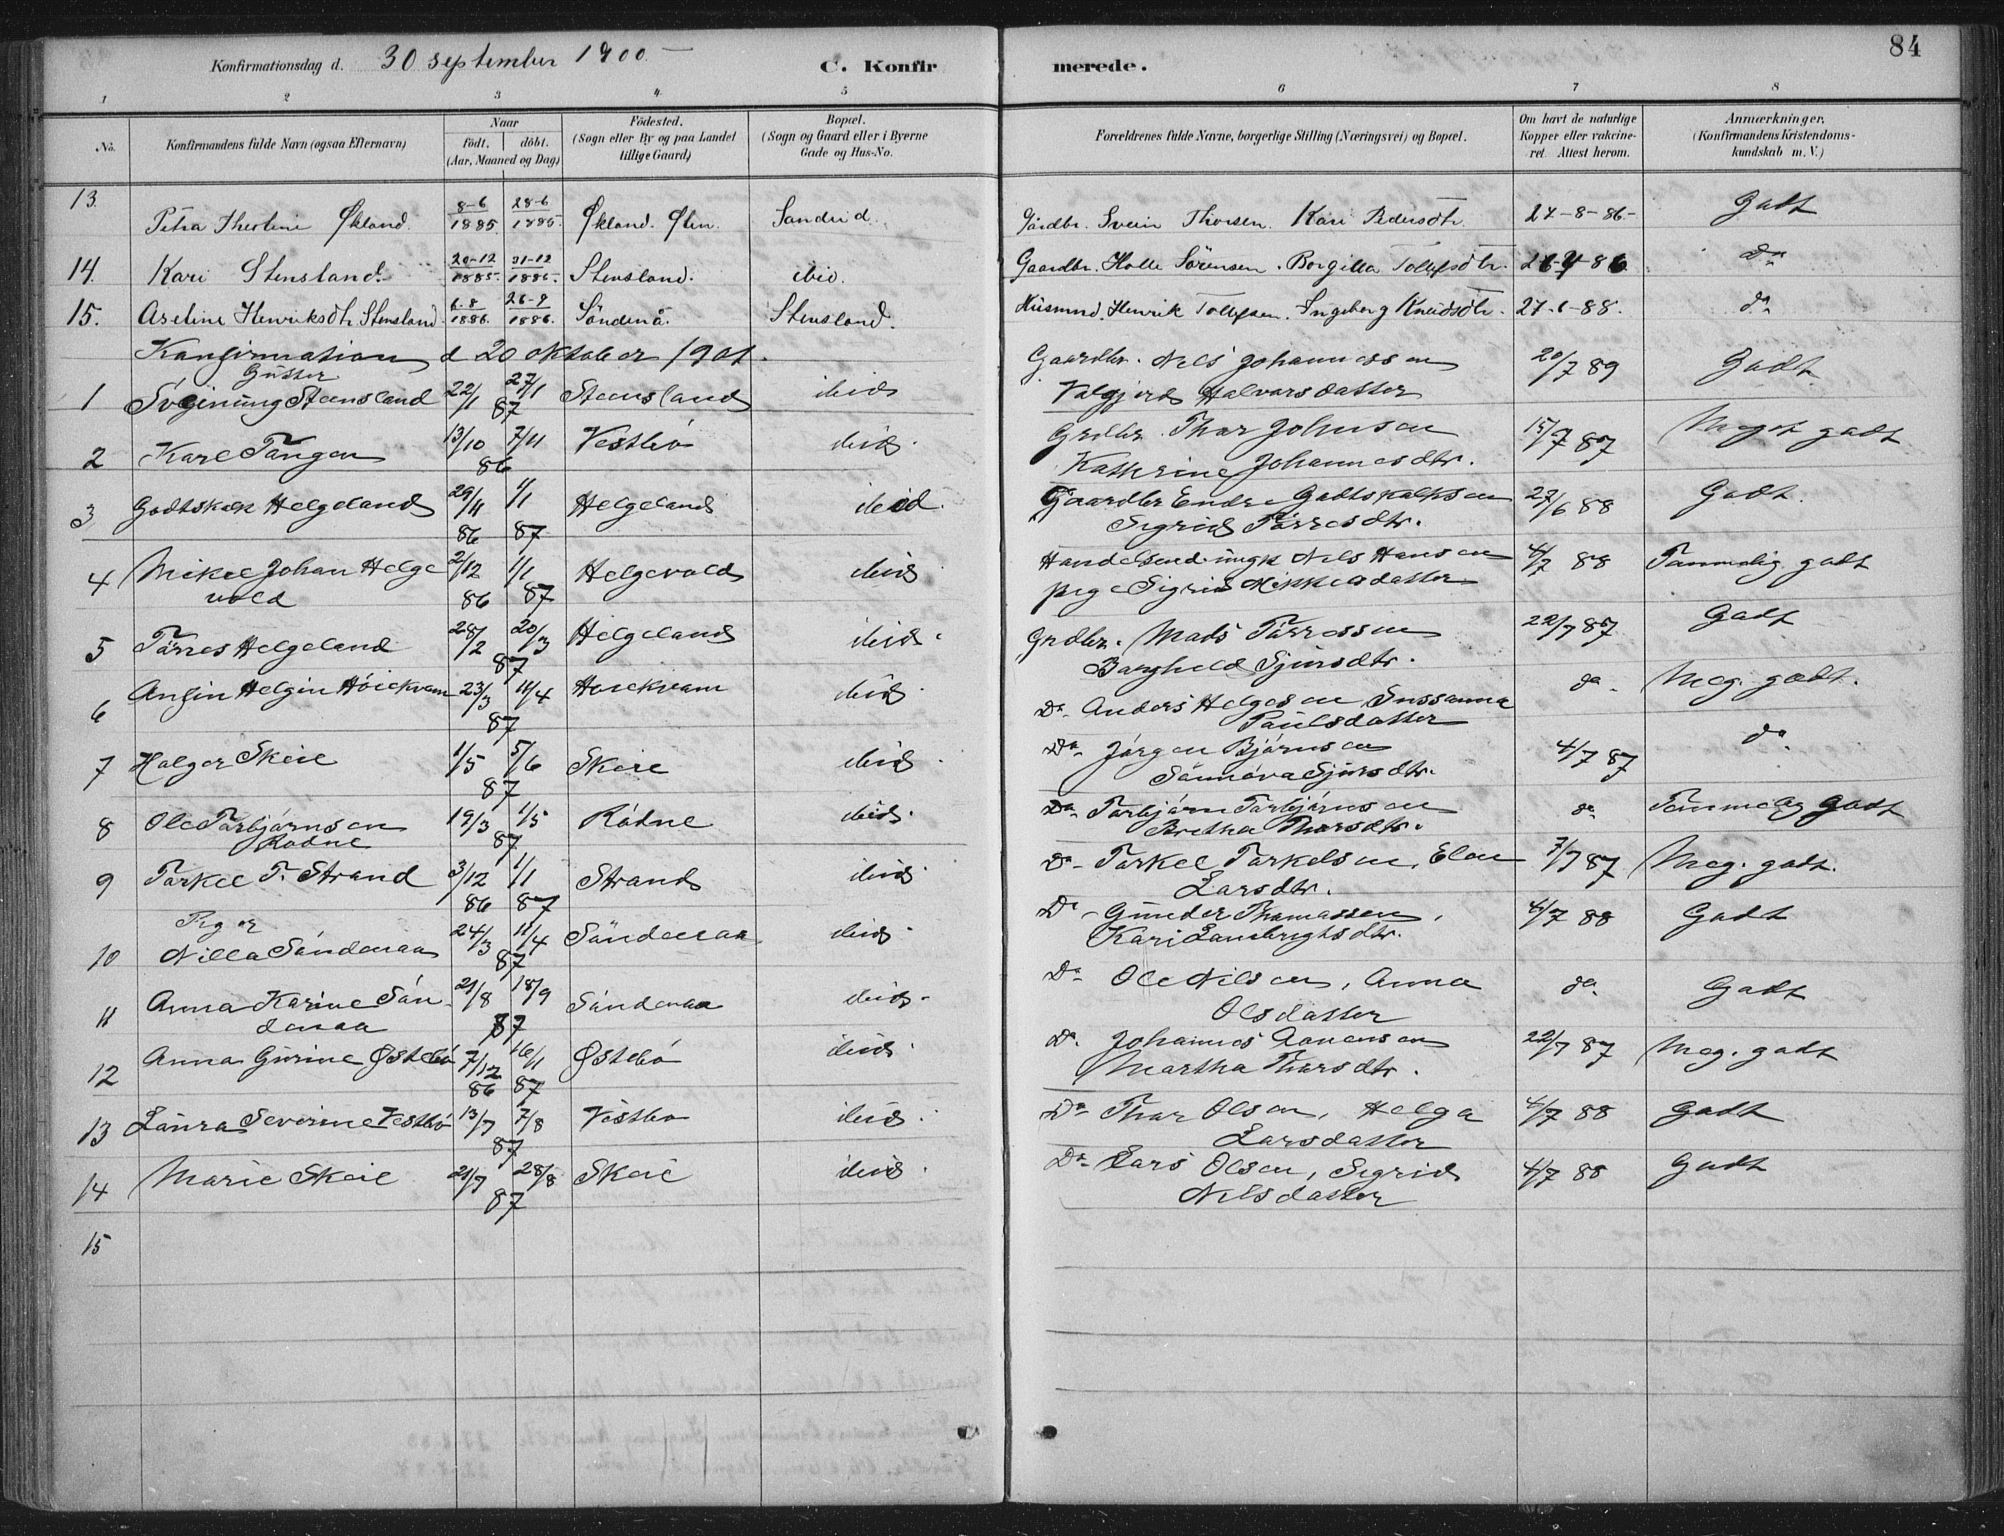 Konfirmationsdag d. 30 september 1900 C. Konfirmerede. 84
1 2 3 4 5 6 7 8
No. Konfirmandens fulde Navn (ogsaa Efternavn) Naar født, døbt. (Aar, Maaned og Dag) Fødested. (Sogn eller By og paa Landet tillige Gaard) Bopæl. (Sogn og Gaard eller i Byerne Gade og Hus-No. Forældrenes fulde Navne, borgerlige Stilling (Næringsvei) og Bopæl. Om havt de naturlige Kopper eller vakcineret. Attest herom. Anmærkninger. (Konfirmandens Kristendomskundskab m. V.)
13. Petra Økland 8-6 1885. 28-6 1885. Økland. Ølen. Sandeid. Gårdbr. Svein Thorsen. Kari Pedersdtr. 27-8-86- Godt
14. Kari Stensland. 20-12 1885. 31-12 1885. Stensland. ibid. Gaardbr. Halle Sørensen. Borgilla Tollefsdtr. do
15. Aseline Henriksdtr. Stensland. 6-8 1886. 1886. Söndenå. Stensland. Husmnd. Henrik Tollefsen. Ingeborg Knudsdtr. 27-6-88. do
Konfirmation d 20 oktober 1901.
1 Gutter Sveinung Steensland 22/1 27/1 87 Steensland ibid Gaardbr. Nels Johannessen Valgjerd Halvarsdatter 20/7 89 Godt
2 Karl Tangen 13/10 7/11 86 Vestbø ibid. Grdbr. Thor Johnsen Kathrine Johannesdtr. 15/7 87 Meget godt
3 Godtskalk Helgeland 29/11 86 1/1 87 Helgeland ibid. Gaardbr Endre Godtskalksen Sigrid Tørresdtr. 27/6 88 Godt.
4 Mikel Johan Helgevold 2/12 86 1/1 87 Helgevold ibid Nils Hansen pige Sigrid Mikkelsdatter 4/7 88 Temmelig godt
5 Tørres Helgeland 28/2 20/3 87 Helgeland ibid. Grdbr. Mads Tørressen Borghild Sjursdtr. 22/7 87 Godt
6 Helgin Høiekvam 23/3 11/4 87 Høiekvam ibid. Do. Anders Helgesen, Sussanna Paulsdatter do. Meg. godt.
7 Holger Skeie 1/5 5/6 87 Skeie ibid. Do. Jørgen Bjørnsen Sønnøva Sjursdtr. 4/7 87 do
8 Ole Torbjørnsen Rødne 19/3 1/5 87 Rødne ibid. Do. Torbjørn Torbjørnsen Bretha Thorsdtr. do. Temmelig Godt
9 Torkel T. Strand 3/12 86 1/1 87 Strand ibid. Do - Torkel Torkelsen, Elen Larsdtr. 7/7 87 Meg. godt.
10 Piger Nilla Søndenaa 24/3 11/4 87 Søndenaa ibid. Do - Gunder Thomassen, Kari Lambrigtsdtr. 4/7 88 Godt
11 Anna Karine Søndenaa 21/8 18/9 87 Søndenaa ibid. Do. Ole Nilsen, Anna Olsdatter do. Godt
12 Anna Gurine Østebø 7/12 86 16/1 87 Østebø ibid. D. Johannes Martha Thorsdtr. 22/7 87 Meg. godt
13 Laura Severine Vestbø 13/7 7/8 87 Vestbø ibid. Do Thor Olsen, Helga Larsdatter 4/7 88 Godt
14 Marie Skeie 21/7 28/8 87 Skeie ibid. Do. Lars Olsen, Sigrid Nilsdatter 4/7 88 Godt
15